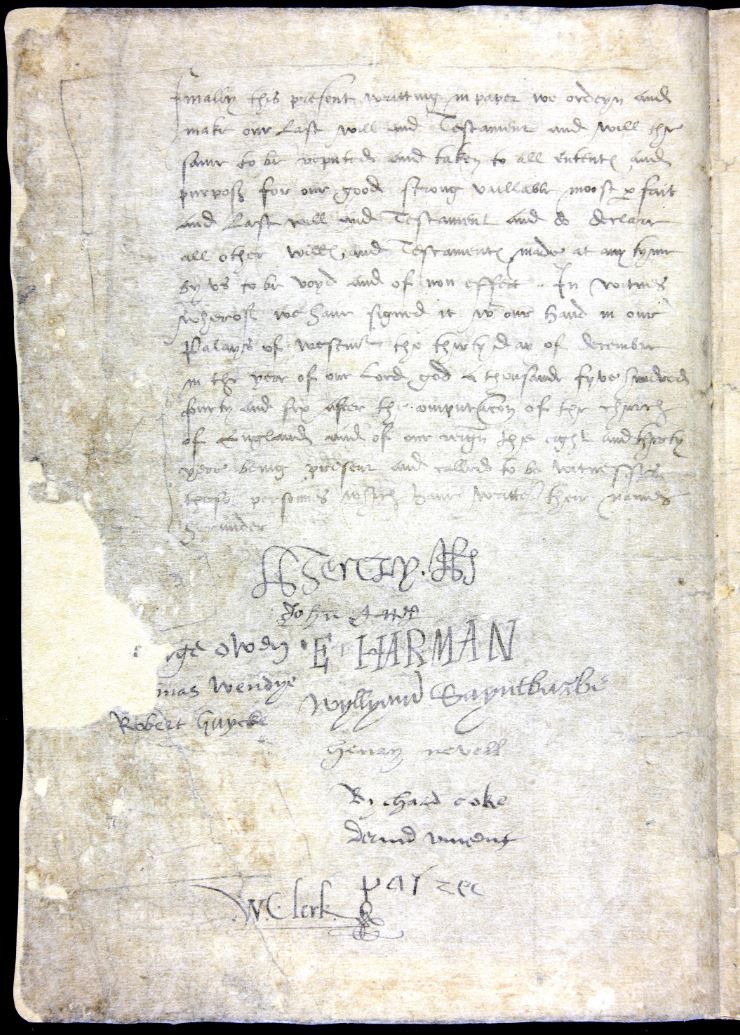 Finally this present writting in paper we ordeyn and
make our last will and Testament and will the
same to be reputed and taken to all ententes and
purposes for our good strong vaillable moost perfait
and last will and Testament and do declare
all other willes and Testamentes made at any tyme
by us to be voyd and of non effect. In witnes
wherof we have signed it wt our hand in our
Palays of westmr the thirty day of december
in the year of our Lord god a thousande fyve hundred
fourty and six after the computation of the church
of Englande and of our reign the eight and thirty
yere being present and called to be witnesses
persones which have written their names
herunder
John Gates
rge Owen E HARMAN
mas Wendye Wyllyam Sayntbarbe
Robert Huycke
Henry nevell
Rychard coke
David vincent
patrec
W Clerk